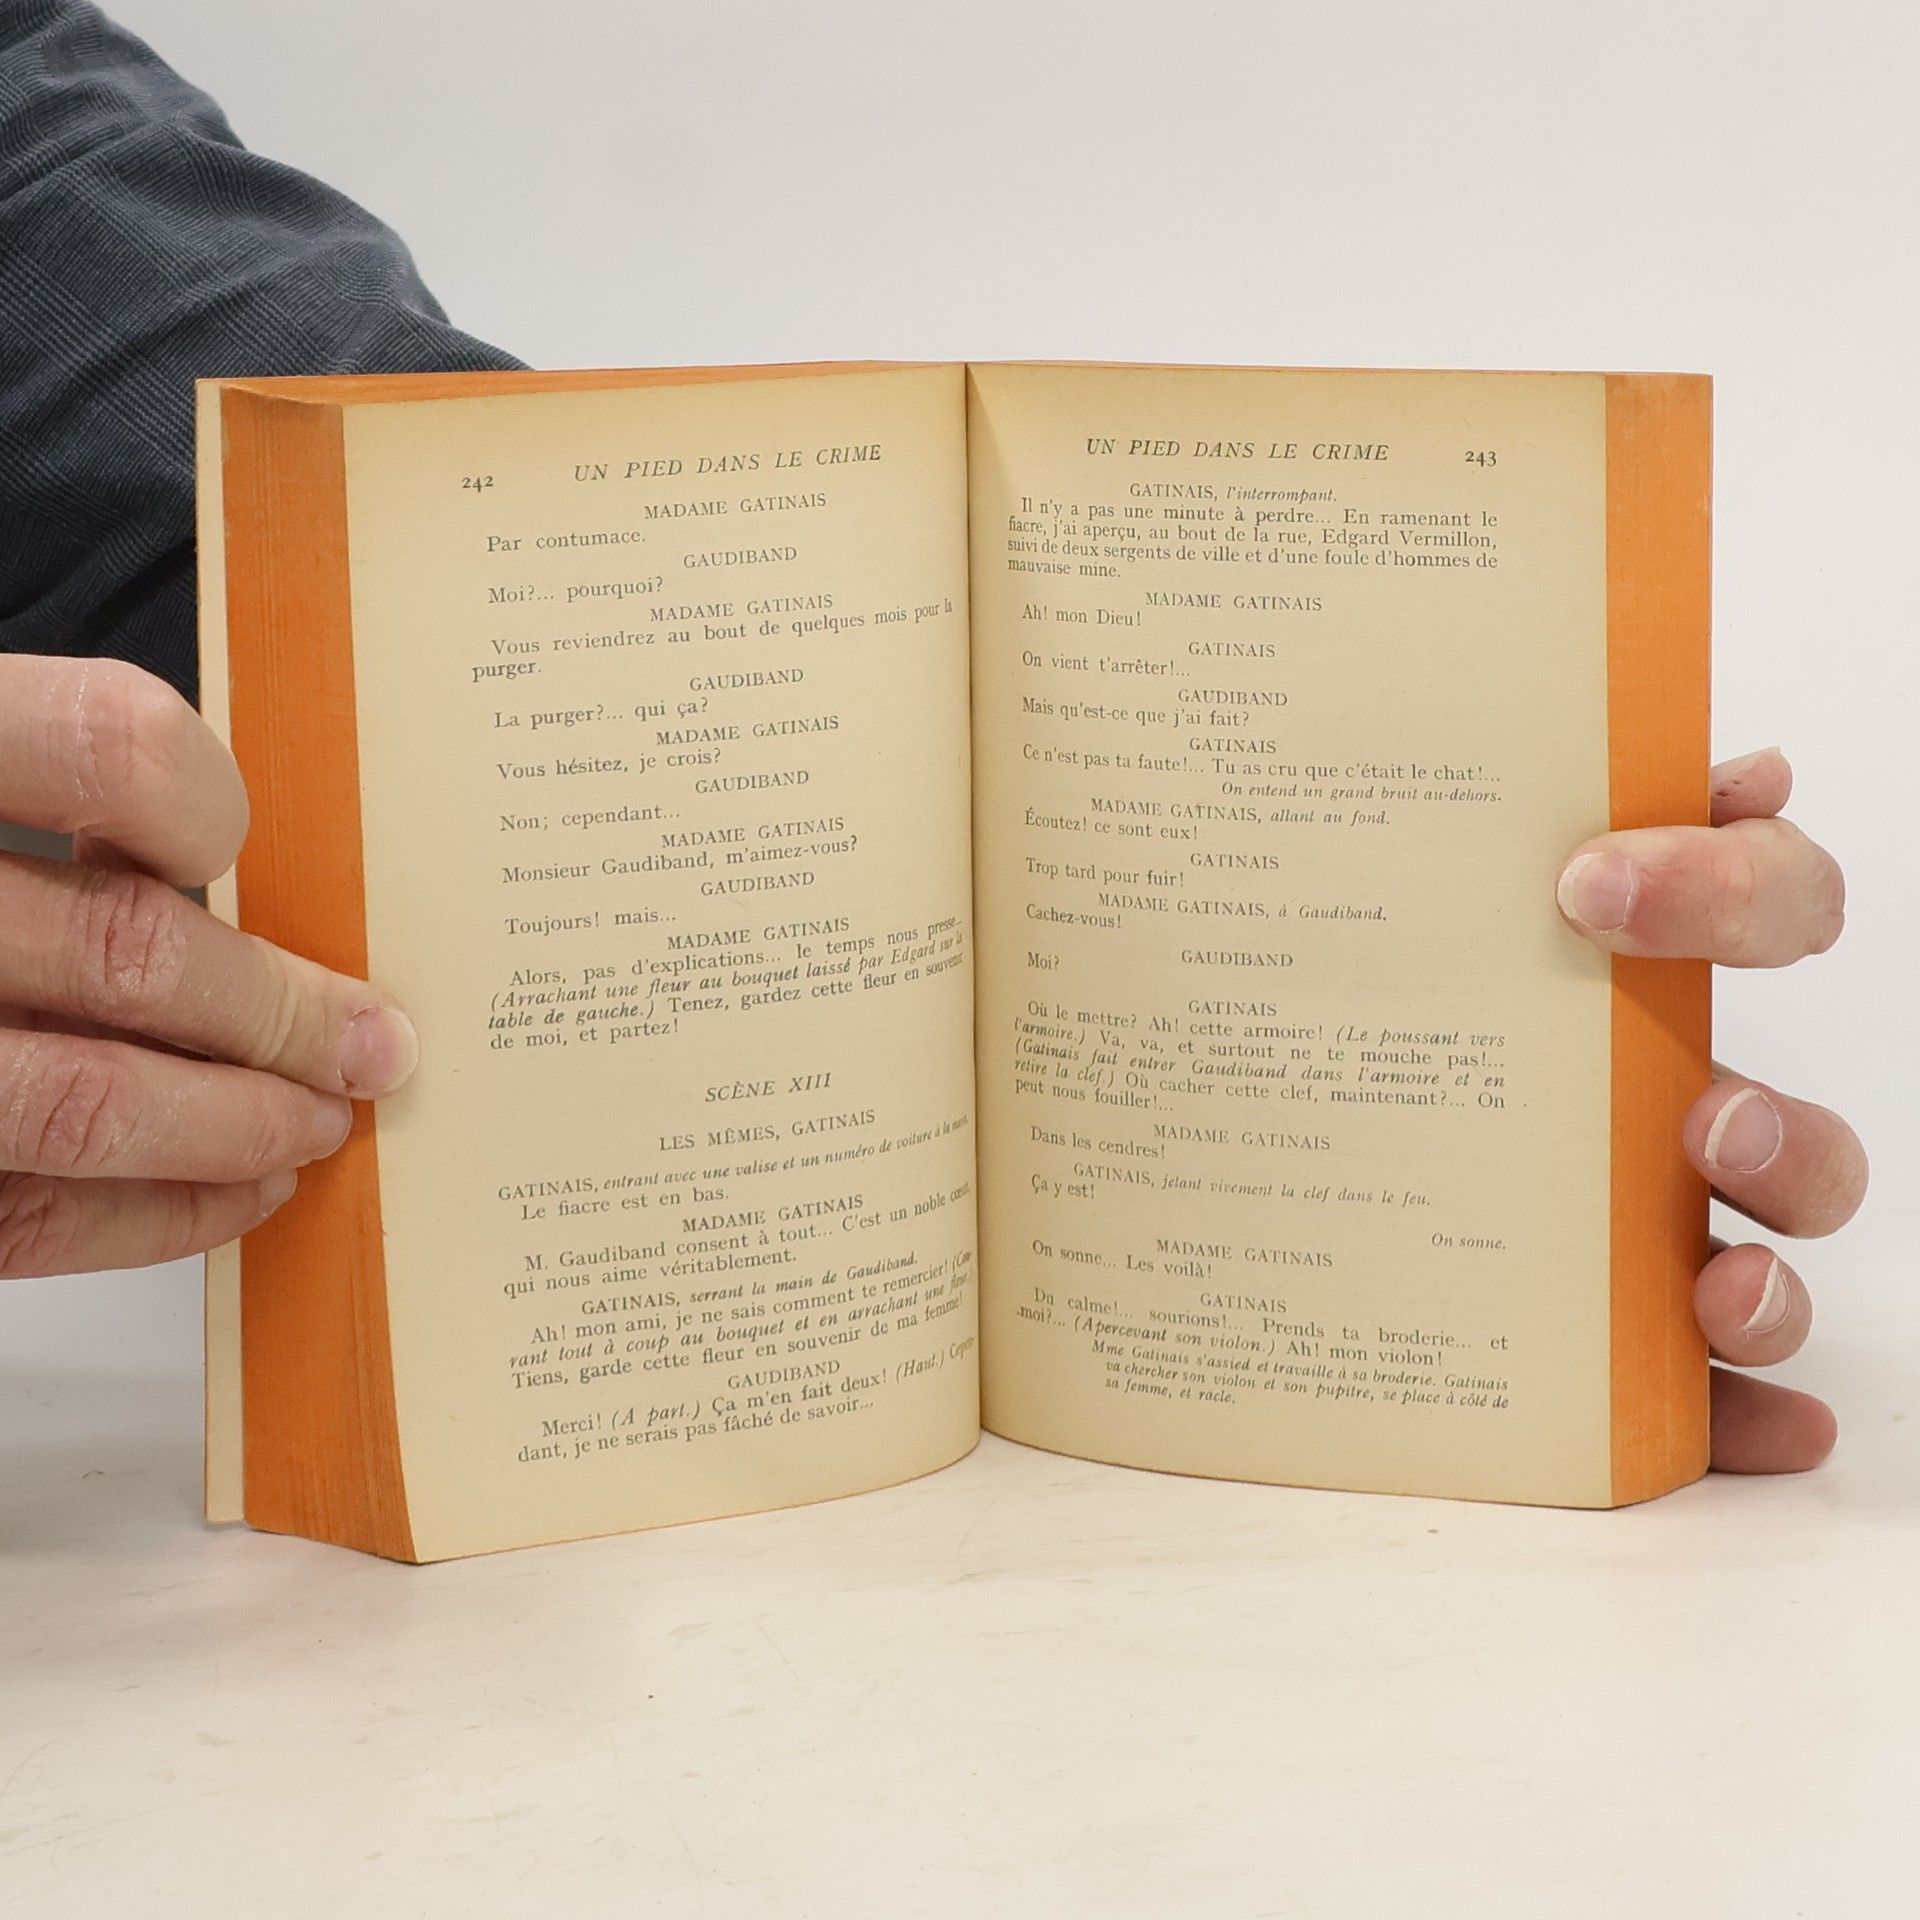 242 UN PIED DANS LE CRIME
MADAME GATINAIS
Par contumace.
GAUDIBAND
Moi?... pourquoi?
MADAME GATINAIS
Vous reviendrez au bout de quelques mois pour la
purger.
GAUDIBAND
La purger?... qui ça?
MADAME GATINAIS
Vous hésitez, je crois?
GAUDIBAND
Non; cependant...
MADAME GATINAIS
Monsieur Gaudiband, m'aimez-vous?
GAUDIBAND
Toujours! mais...
MADAME GATINAIS
Alors, pas d'explications... le temps nous presse...
(Arrachant une fleur au bouquet laissé par Edgard sur la
table de gauche.) Tenez, gardez cette fleur en souvenir
de moi, et partez!
SCÈNE XIII
LES MÊMES, GATINAIS
GATINAIS, entrant avec une valise et un numéro de voiture à la main.
Le fiacre est en bas.
MADAME GATINAIS
M. Gaudiband consent à tout... C'est un noble cœur,
qui nous aime véritablement.
GATINAIS, serrant la main de Gaudiband.
Ah! mon ami, je ne sais comment te remercier! (Cou-
rant tout à coup au bouquet et en arrachant une fleur.)
Tiens, garde cette fleur en souvenir de ma femme!
GAUDIBAND
Merci! (A part.) Ça m'en fait deux! (Haut.) Cepen-
dant, je ne serais pas fâché de savoir...
UN PIED DANS LE CRIME 243
GATINAIS, l'interrompant.
Il n'y a pas une minute à perdre... En ramenant le
fiacre, j'ai aperçu, au bout de la rue, Edgard Vermillon,
suivi de deux sergents de ville et d'une foule d'hommes de
mauvaise mine.
MADAME GATINAIS
Ah! mon Dieu!
GATINAIS
On vient t'arrêter!...
GAUDIBAND
Mais qu'est-ce que j'ai fait?
GATINAIS
Ce n'est pas ta faute!... Tu as cru que c'était le chat!...
On entend un grand bruit au-dehors.
MADAME GATINAIS, allant au fond.
Écoutez! ce sont eux!
GATINAIS
Trop tard pour fuir!
MADAME GATINAIS, à Gaudiband.
Cachez-vous!
GAUDIBAND
Moi?
GATINAIS
Où le mettre? Ah! cette armoire! (Le poussant vers
l'armoire.) Va, va, et surtout ne te mouche pas!...
(Gatinais fait entrer Gaudiband dans l'armoire et en
retire la clef.) Où cacher cette clef, maintenant?... On
peut nous fouiller!...
MADAME GATINAIS
Dans les cendres!
GATINAIS, jetant vivement la clef dans le feu.
Ça y est!
On sonne.
MADAME GATINAIS
On sonne... Les voilà!
GATINAIS
Du calme!... sourions!... Prends ta broderie... et
moi?... (Apercevant son violon.) Ah! mon violon!
Mme Gatinais s'assied et travaille à sa broderie. Gatinais
va chercher son violon et son pupitre, se place à côté de
sa femme, et racle.